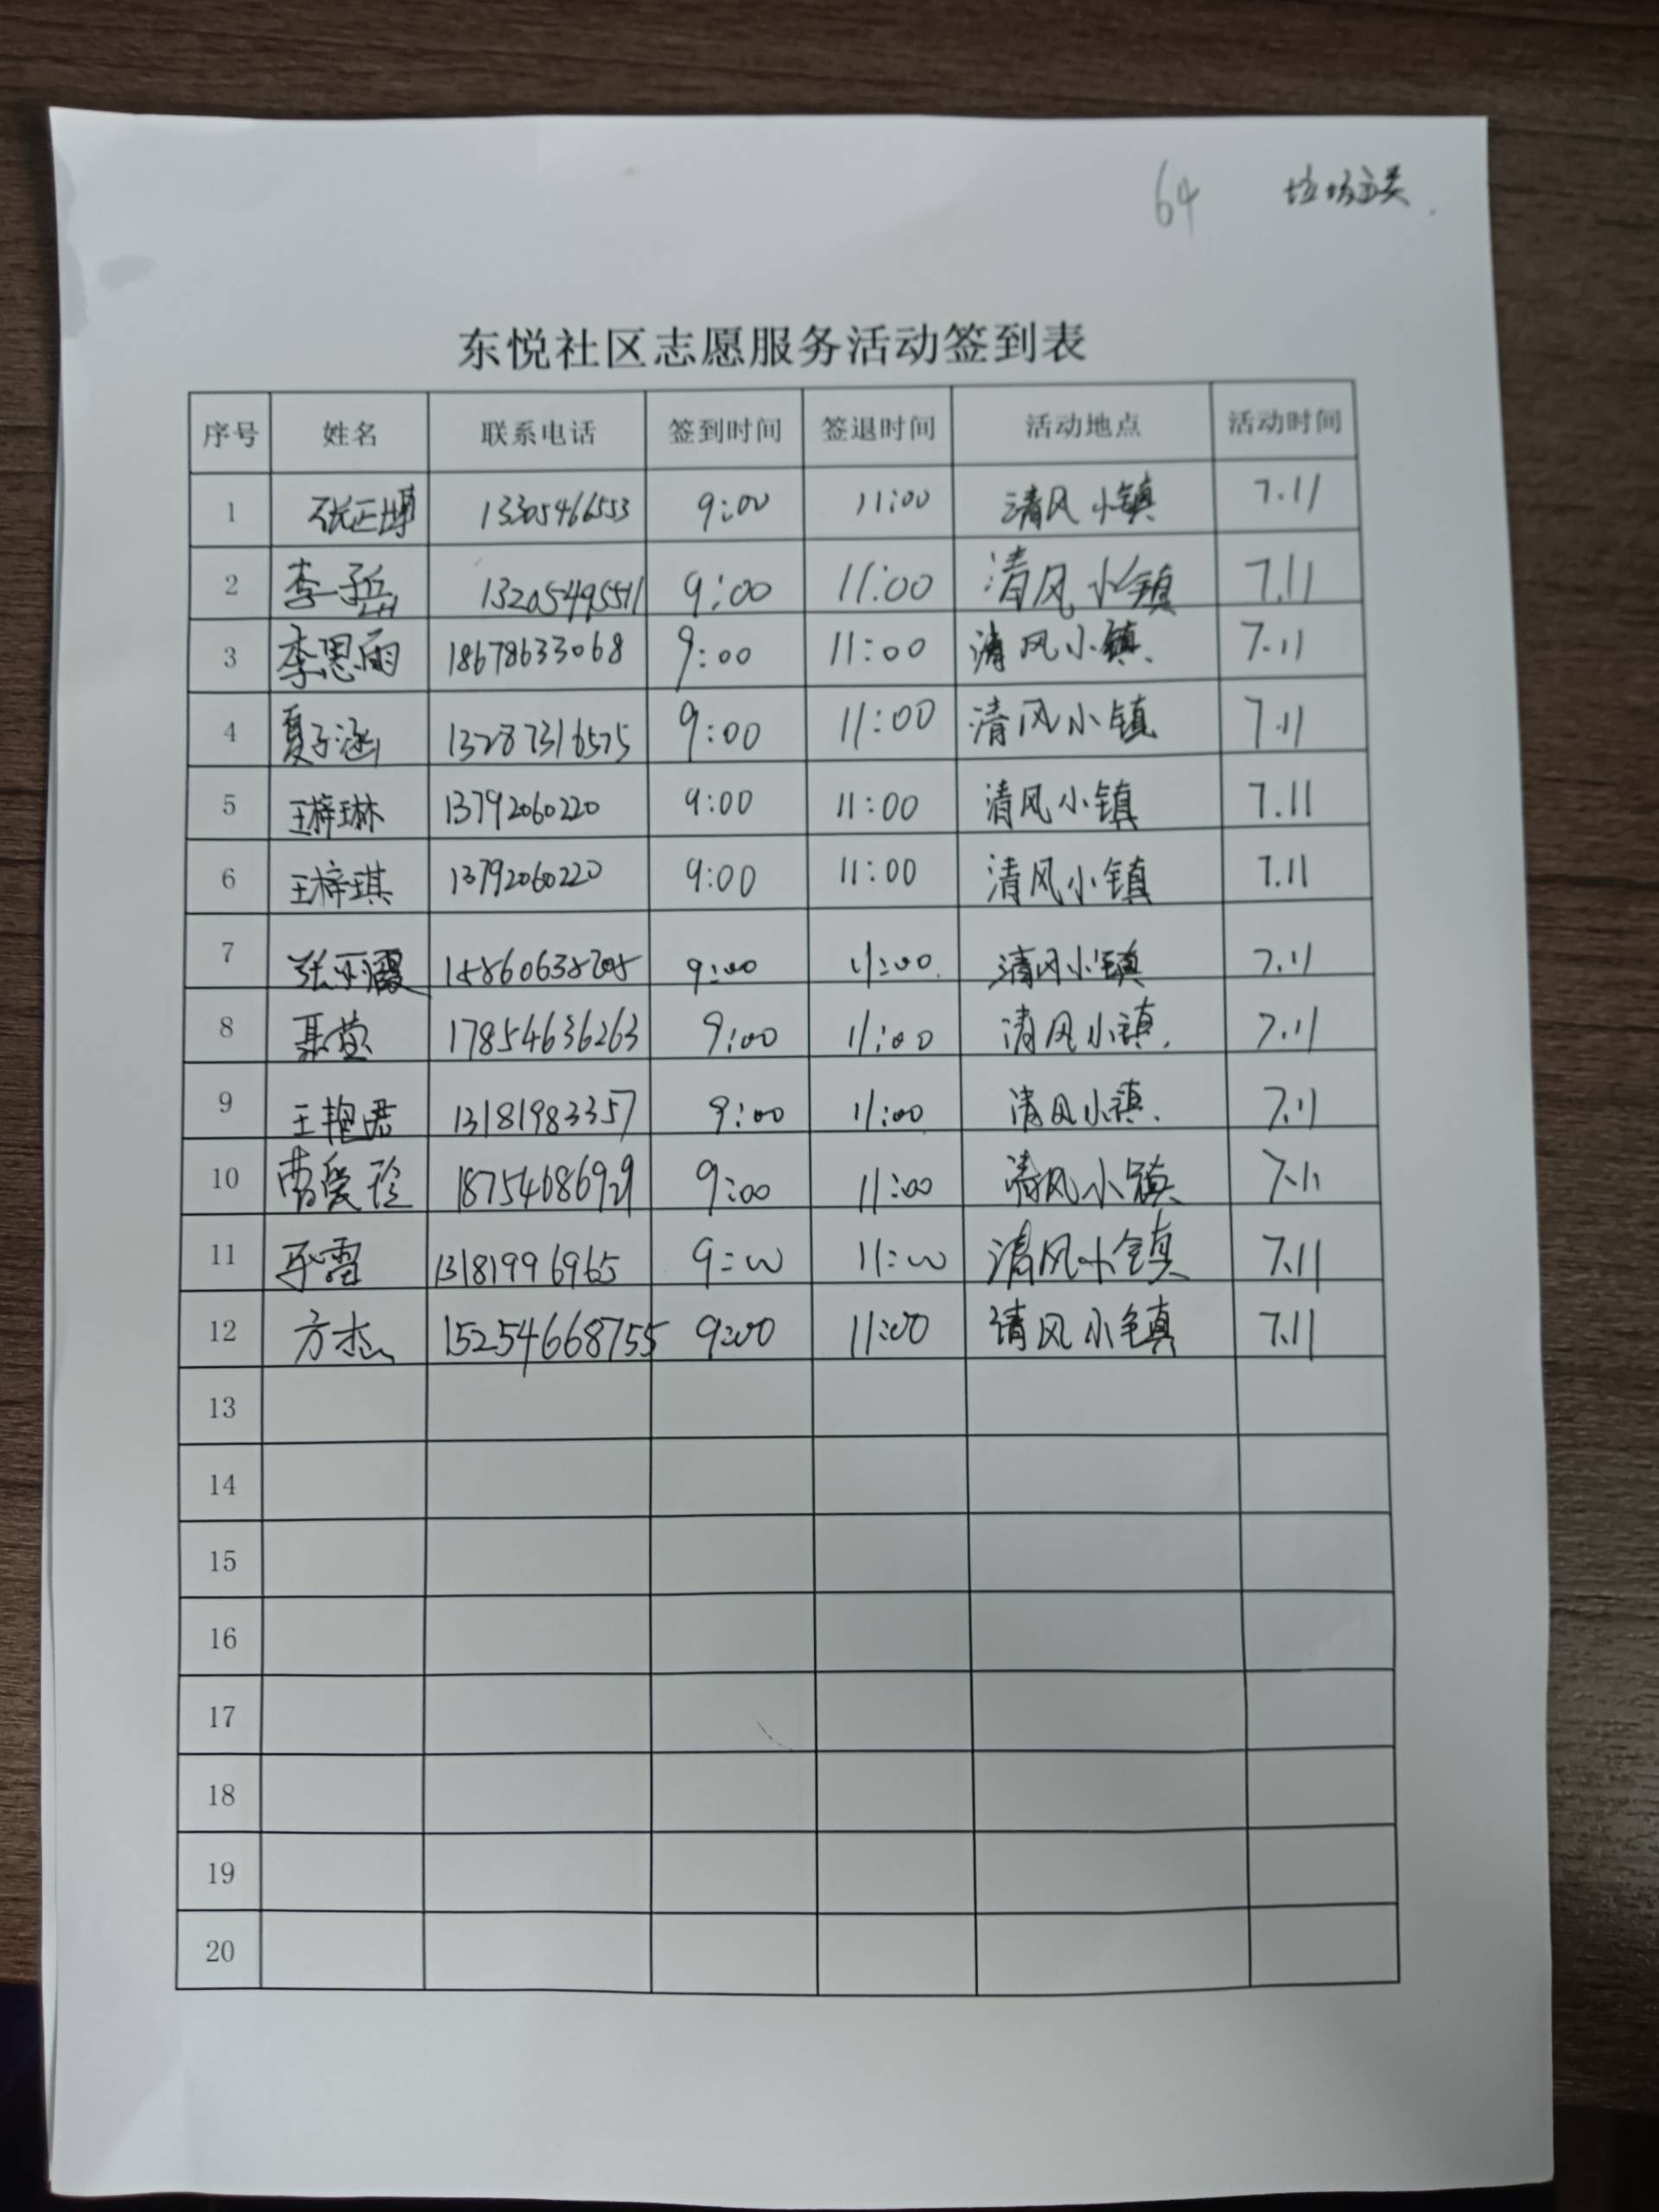 64 垃圾分类
东悦社区志愿服务活动签到表
序号 姓名 联系电话 签到时间 签退时间 活动地点 活动时间
1 张正博 13305466553 9:00 11:00 清风小镇 7.11
2 李一岳 13205495511 9:00 11:00 清风小镇 7.11
3 李思雨 18678633068 9:00 11:00 清风小镇 7.11
4 夏子涵 13287316575 9:00 11:00 清风小镇 7.11
5 王梓琳 13792060220 9:00 11:00 清风小镇 7.11
6 王梓琪 13792060220 9:00 11:00 清风小镇 7.11
7 张丽霞 9:00 11:00 清风小镇 7.11
8 聂莹 17854636263 9:00 11:00 清风小镇 7.11
9 王艳君 13181983357 9:00 11:00 清风小镇 7.11
10 曹爱玲 18754686929 9:00 11:00 清风小镇 7.11
11 13181996965 9:00 11:00 清风小镇 7.11
12 方杰 15254668755 9:00 11:00 清风小镇 7.11
13
14
15
16
17
18
19
20